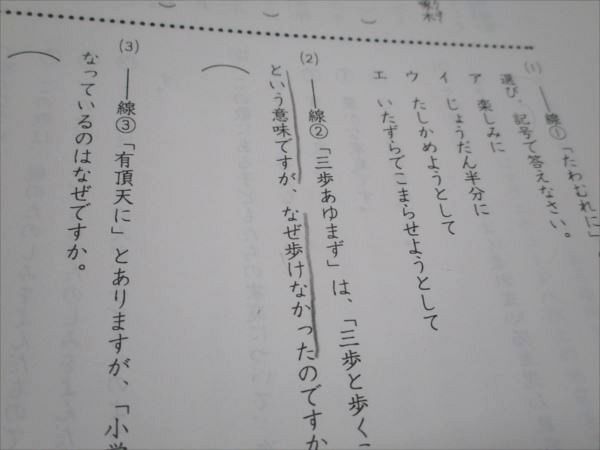 (1) ――線①「たわむれに」
選び、記号で答えなさい。
ア 楽しみに
イ じょうだん半分に
ウ たしかめようとして
エ いたずらでこまらせようとして
(2) ――線②「三歩あゆまず」は、「三歩と歩く
という意味ですが、なぜ歩けなかったのですか
(3) ――線③「有頂天に」とありますが、「小学
なっているのはなぜですか。